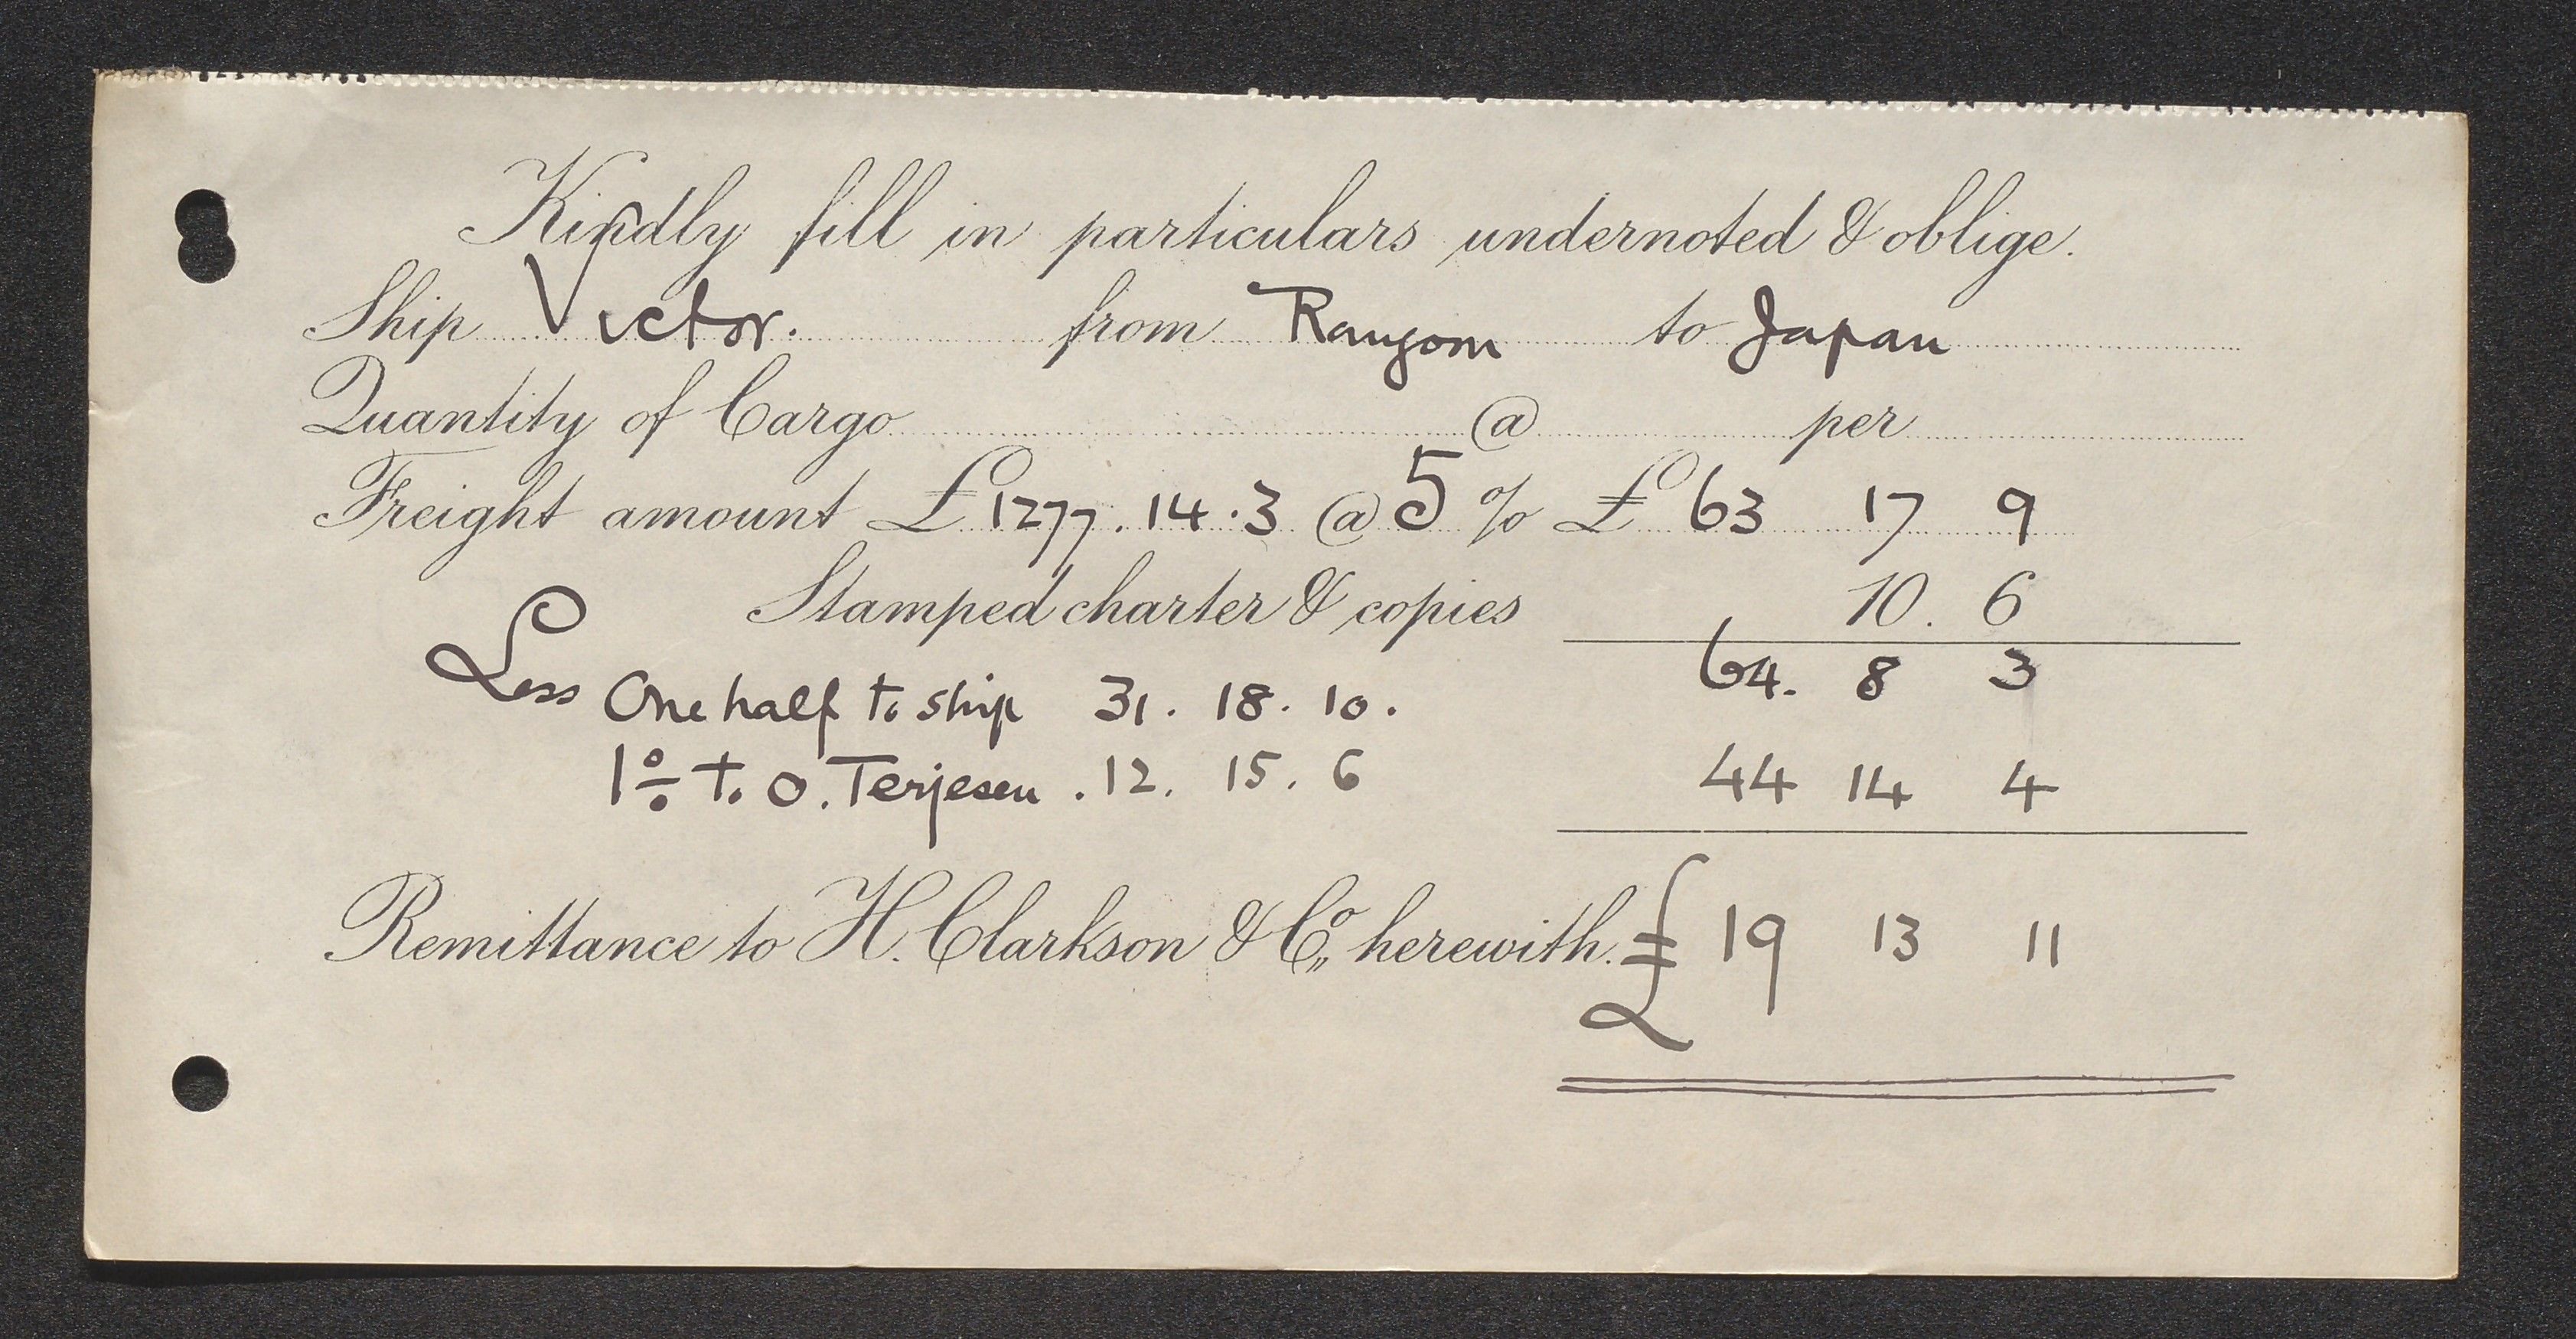 Kindly fill in particulars undernoted & oblige.
Ship Victor. from Rangoon to Japan
Quantity of Cargo @ per
Freight amount £1277.14.3 @ 5 % £ 63 17 9
Stamped charter & copies 10. 6
64. 8 3
Less One half to ship 31. 18. 10.
1% to O. Terjesen. 12. 15. 6 44 14 4
Remittance to H. Clarkson & Co,, herewith. £ 19 13 11